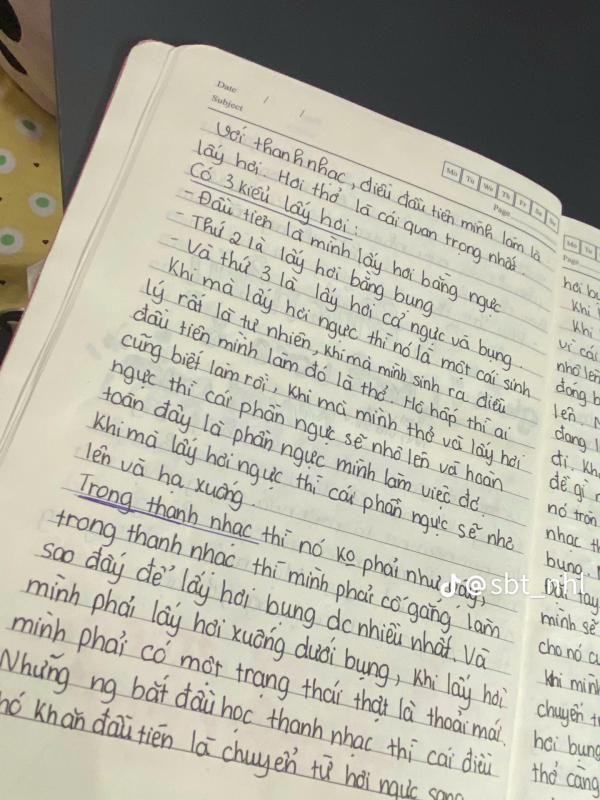 Date / /
Subject
Mo Tu We Th Fr Sa Su
Page
Với thanh nhạc, điều đầu tiên mình làm là
lấy hơi. Hơi thở là cái quan trọng nhất.
Có 3 kiểu lấy hơi:
- Đầu tiên là mình lấy hơi bằng ngực
- Thứ 2 là lấy hơi bằng bụng
- Và thứ 3 là lấy hơi cả ngực và bụng.
Khi mà lấy hơi ngực thì nó là một cái sinh
lý rất là tự nhiên, khi mà mình sinh ra điều
đầu tiên mình làm đó là thở. Hô hấp thì ai
cũng biết làm rồi, khi mà mình thở và lấy hơi
ngực thì cái phần ngực sẽ nhô lên và hoàn
toàn đấy là phần ngực mình làm việc đó.
Khi mà lấy hơi ngực thì cái phần ngực sẽ nhô
lên và hạ xuống.
Trong thanh nhạc thì nó ko phải như vậy,
trong thanh nhạc thì mình phải cố gắng làm
sao đấy để lấy hơi bụng dc nhiều nhất. Và
mình phải lấy hơi xuống dưới bụng, khi lấy hơi
mình phải có một trạng thái thật là thoải mái.
Những ng bắt đầu học thanh nhạc thì cái điều
khó khăn đầu tiên là chuyển từ hơi ngực sang
Mo Tu
Page
hơi bụ
Khi
Khi
vì cái
nhô lên
đóng b
lên.
đang l
đi. Kh
để gì
nó tròn
nhạc th
bụng.
mình sẽ
cho nó c
Khi mình
chuyển t
hơi bụng
thở càng
@sbt_nhl